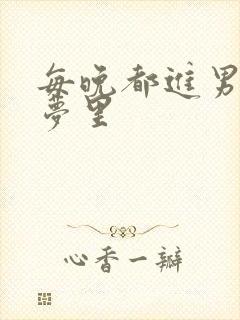 每晚都进男
梦里
心香一瓣